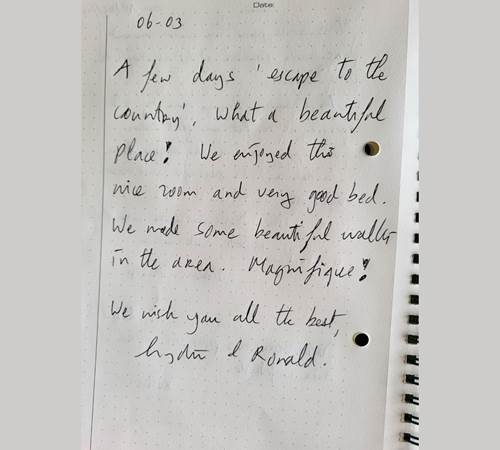 Date:
06-03
A few days 'escape to the
country', what a beautiful
place! We enjoyed the
nice room and very good bed.
We made some beautiful walks
in the area. Magnifique!
We wish you all the best,
& Ronald.